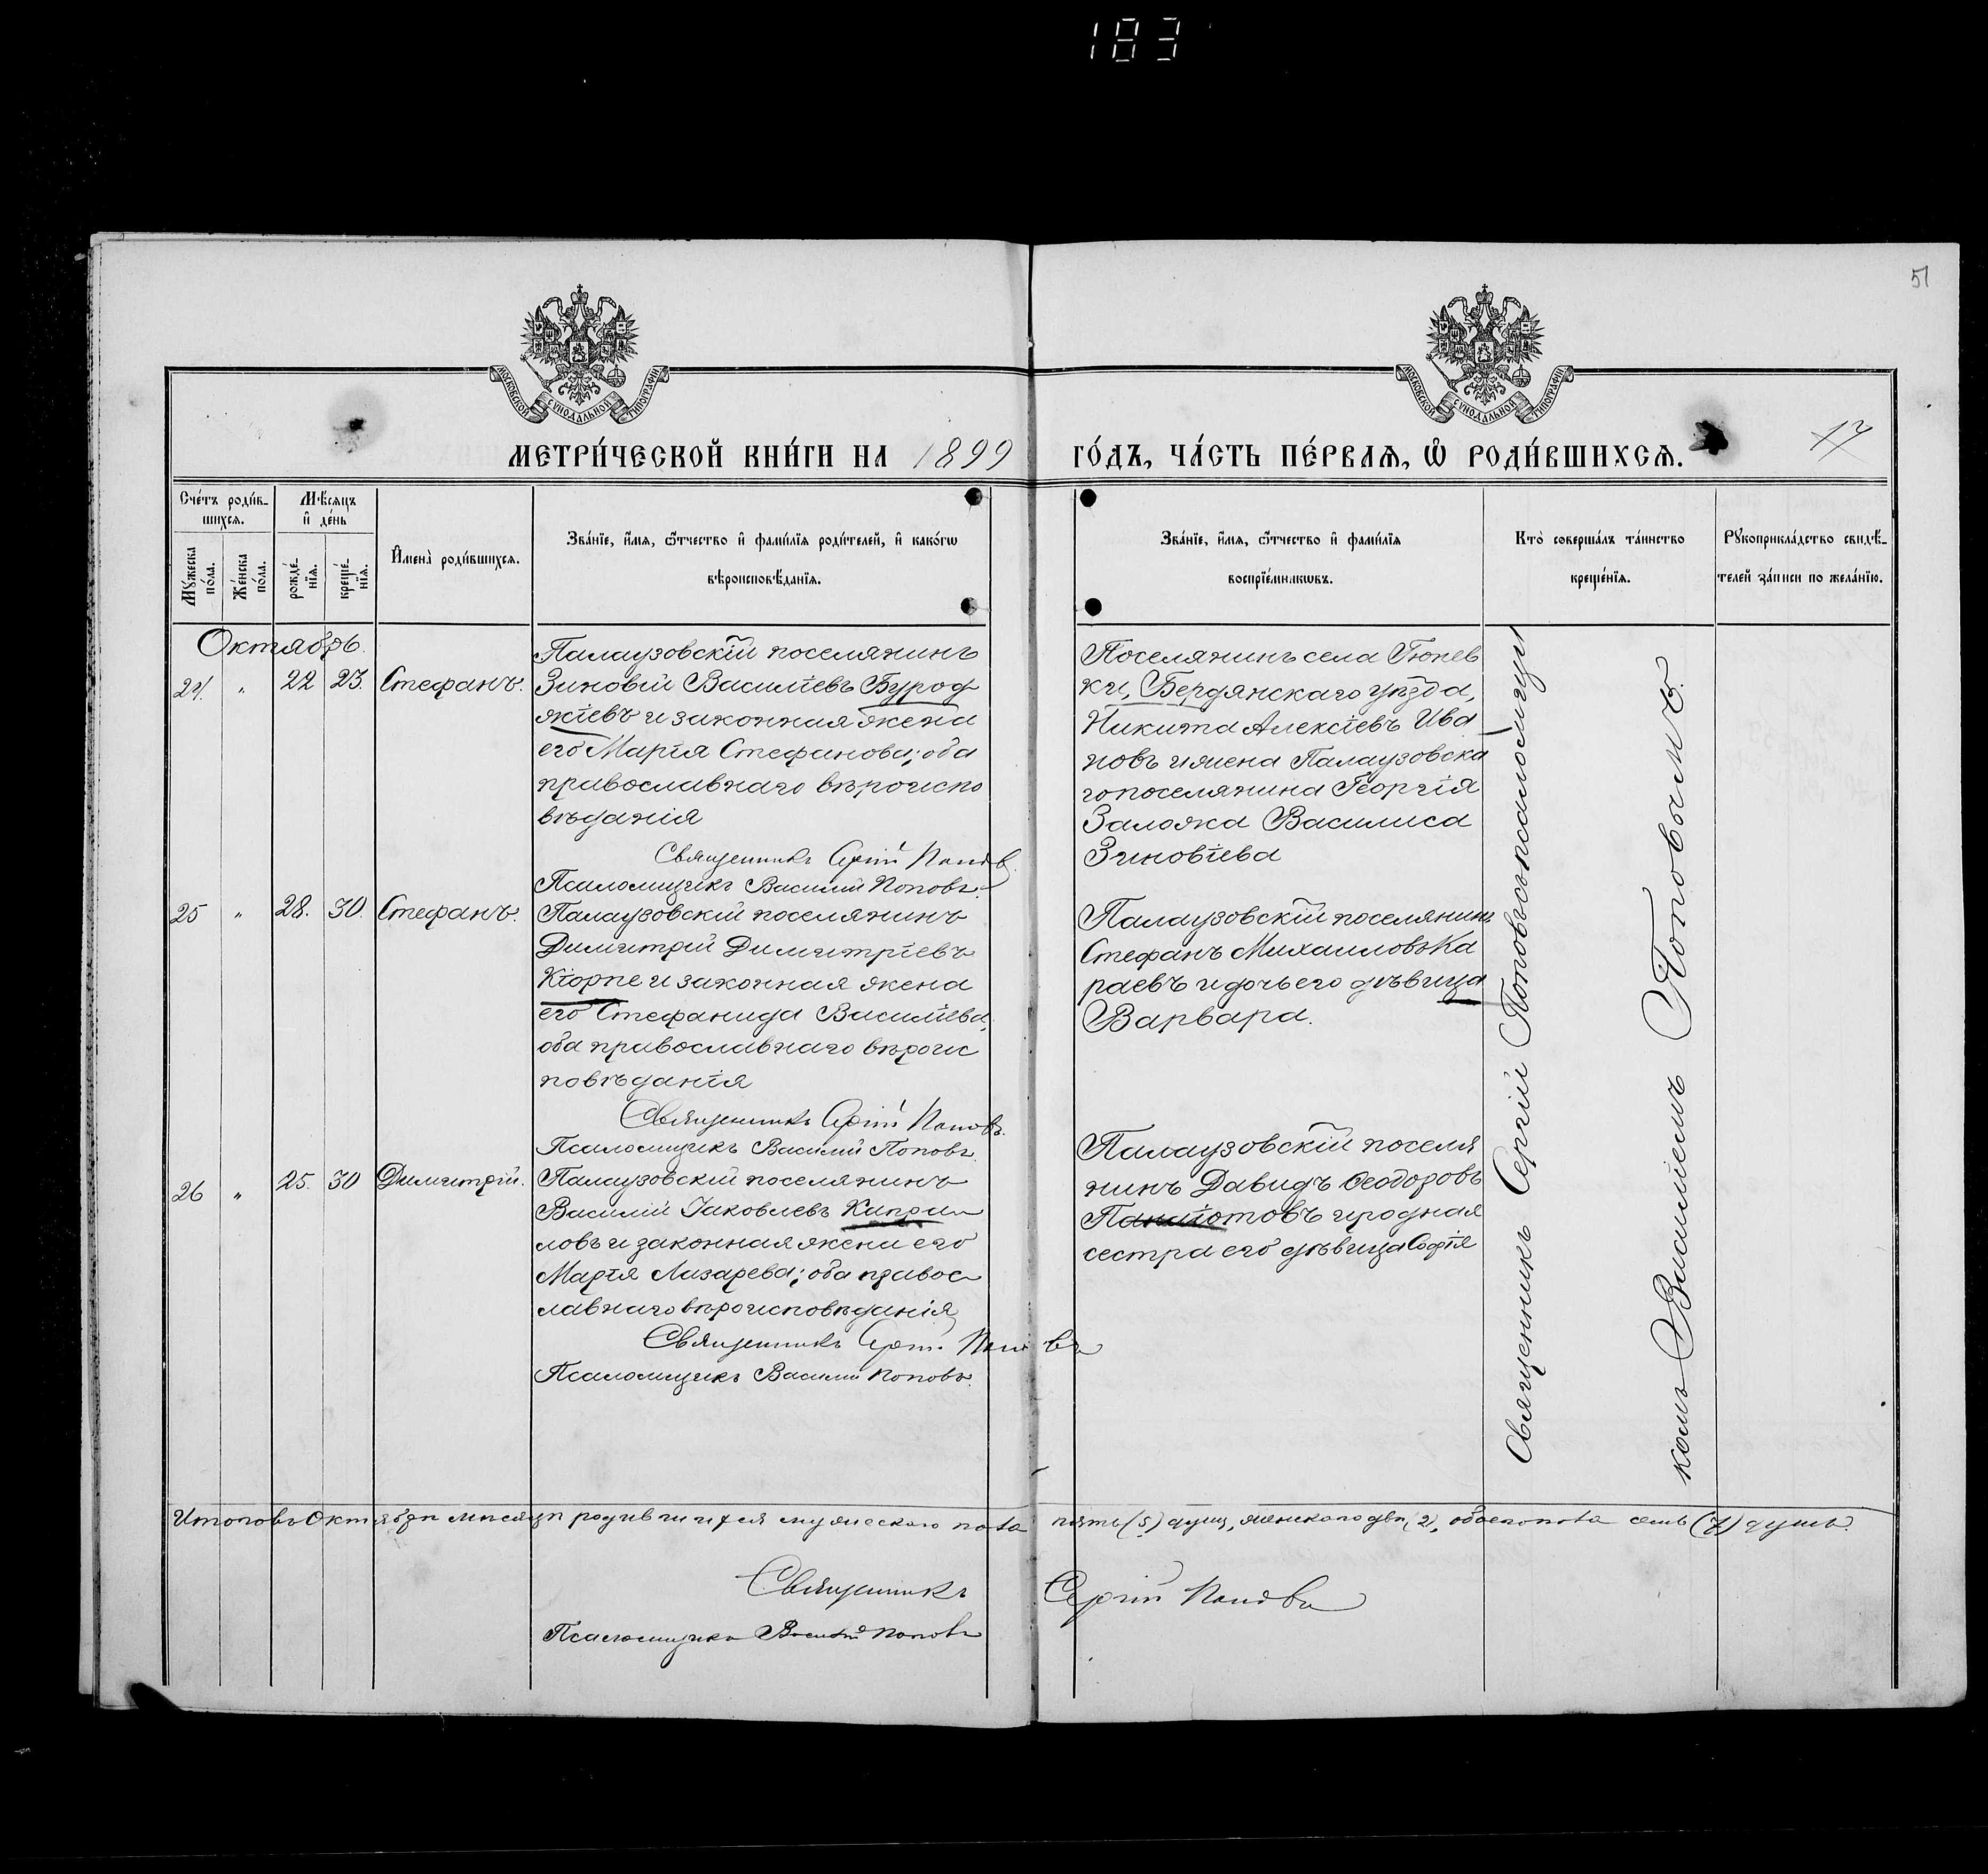 183
51
МОСКОВСКОЙ СѴНОДАЛЬНОЙ ТИПОГРАФІИ
МОСКОВСКОЙ СѴНОДАЛЬНОЙ ТИПОГРАФІИ
МЕТРИ́ЧЕСКОЙ КНИ́ГИ НА 1899 ГО́ДЪ, ЧА́СТЬ ПЕ́РВАѦ, Ѡ҆ РОДИ́ВШИХСѦ.
17
Сче́тъ роди́в-
шихсѧ.
Мꙋ́жеска по́ла.
Же́нска по́ла.
Мѣ́сяцъ
и҆ де́нь
рожде́-
нїѧ.
креще́-
нїѧ.
И҆мена̀ роди́вшихсѧ.
Зва́нїе, и҆́мѧ, ѻ҆́тчество и҆ фамі́лїѧ роди́телей, и҆ како́гѡ
вѣроисповѣ́данїѧ.
Зва́нїе, и҆́мѧ, ѻ҆́тчество и҆ фамі́лїѧ
воспрїе́мникѡвъ.
Кто̀ соверша́лъ та́инство
креще́нїѧ.
Рꙋкоприкла́дство свидѣ́-
телей за́писи по жела́нїю.
Октябрь.
24. " 22 23. Стефанъ.
Палаузовскій поселянинъ
Зиновій Василіевъ Бурод
жіевъ и законная жена
его Марія Стефанова; оба
православнаго вѣроиспо
вѣданія
Священникъ Сергій Поповъ
Псаломщикъ Василій Поповъ
Поселянинъ села Гюнев
ки, Бердянскаго уѣзда,
Никита Алексіевъ Ива
новъ и жена Палаузовска
го поселянина Георгія
Заложа Василиса
Зиновіева
25 " 28. 30. Стефанъ.
Палаузовскій поселянинъ
Димитрій Димитріевъ
Кюрпе и законная жена
его Стефанида Василіева,
оба православнаго вѣроис
повѣданія
Священникъ Сергій Поповъ.
Псаломщикъ Василій Поповъ
Палаузовскій поселянинъ
Стефанъ Михаиловъ Ка
раевъ и дочь его дѣвица
Варвара.
26 " 25. 30 Димитрій.
Палаузовскій поселянинъ
Василій Іаковлевъ Капра
ловъ и законная жена его
Марія Лазарева; оба правос
лавнаго вѣроисповѣданія
Священникъ Сергій Поповъ
Псаломщикъ Василій Поповъ.
Палаузовскій поселя
нинъ Давидъ Ѳеодоровъ
Панайотовъ и родная
сестра его дѣвица Софія
Священникъ Сергій Поповъ съ псаломщи
комъ Василіемъ Поповымъ.
Итого въ Октябрѣ мѣсяцѣ родившихся мужескаго пола пять (5) душъ, женскаго двѣ (2), обоего пола семь (7) душъ.
Священникъ Сергій Поповъ
Псаломщикъ Василій Поповъ